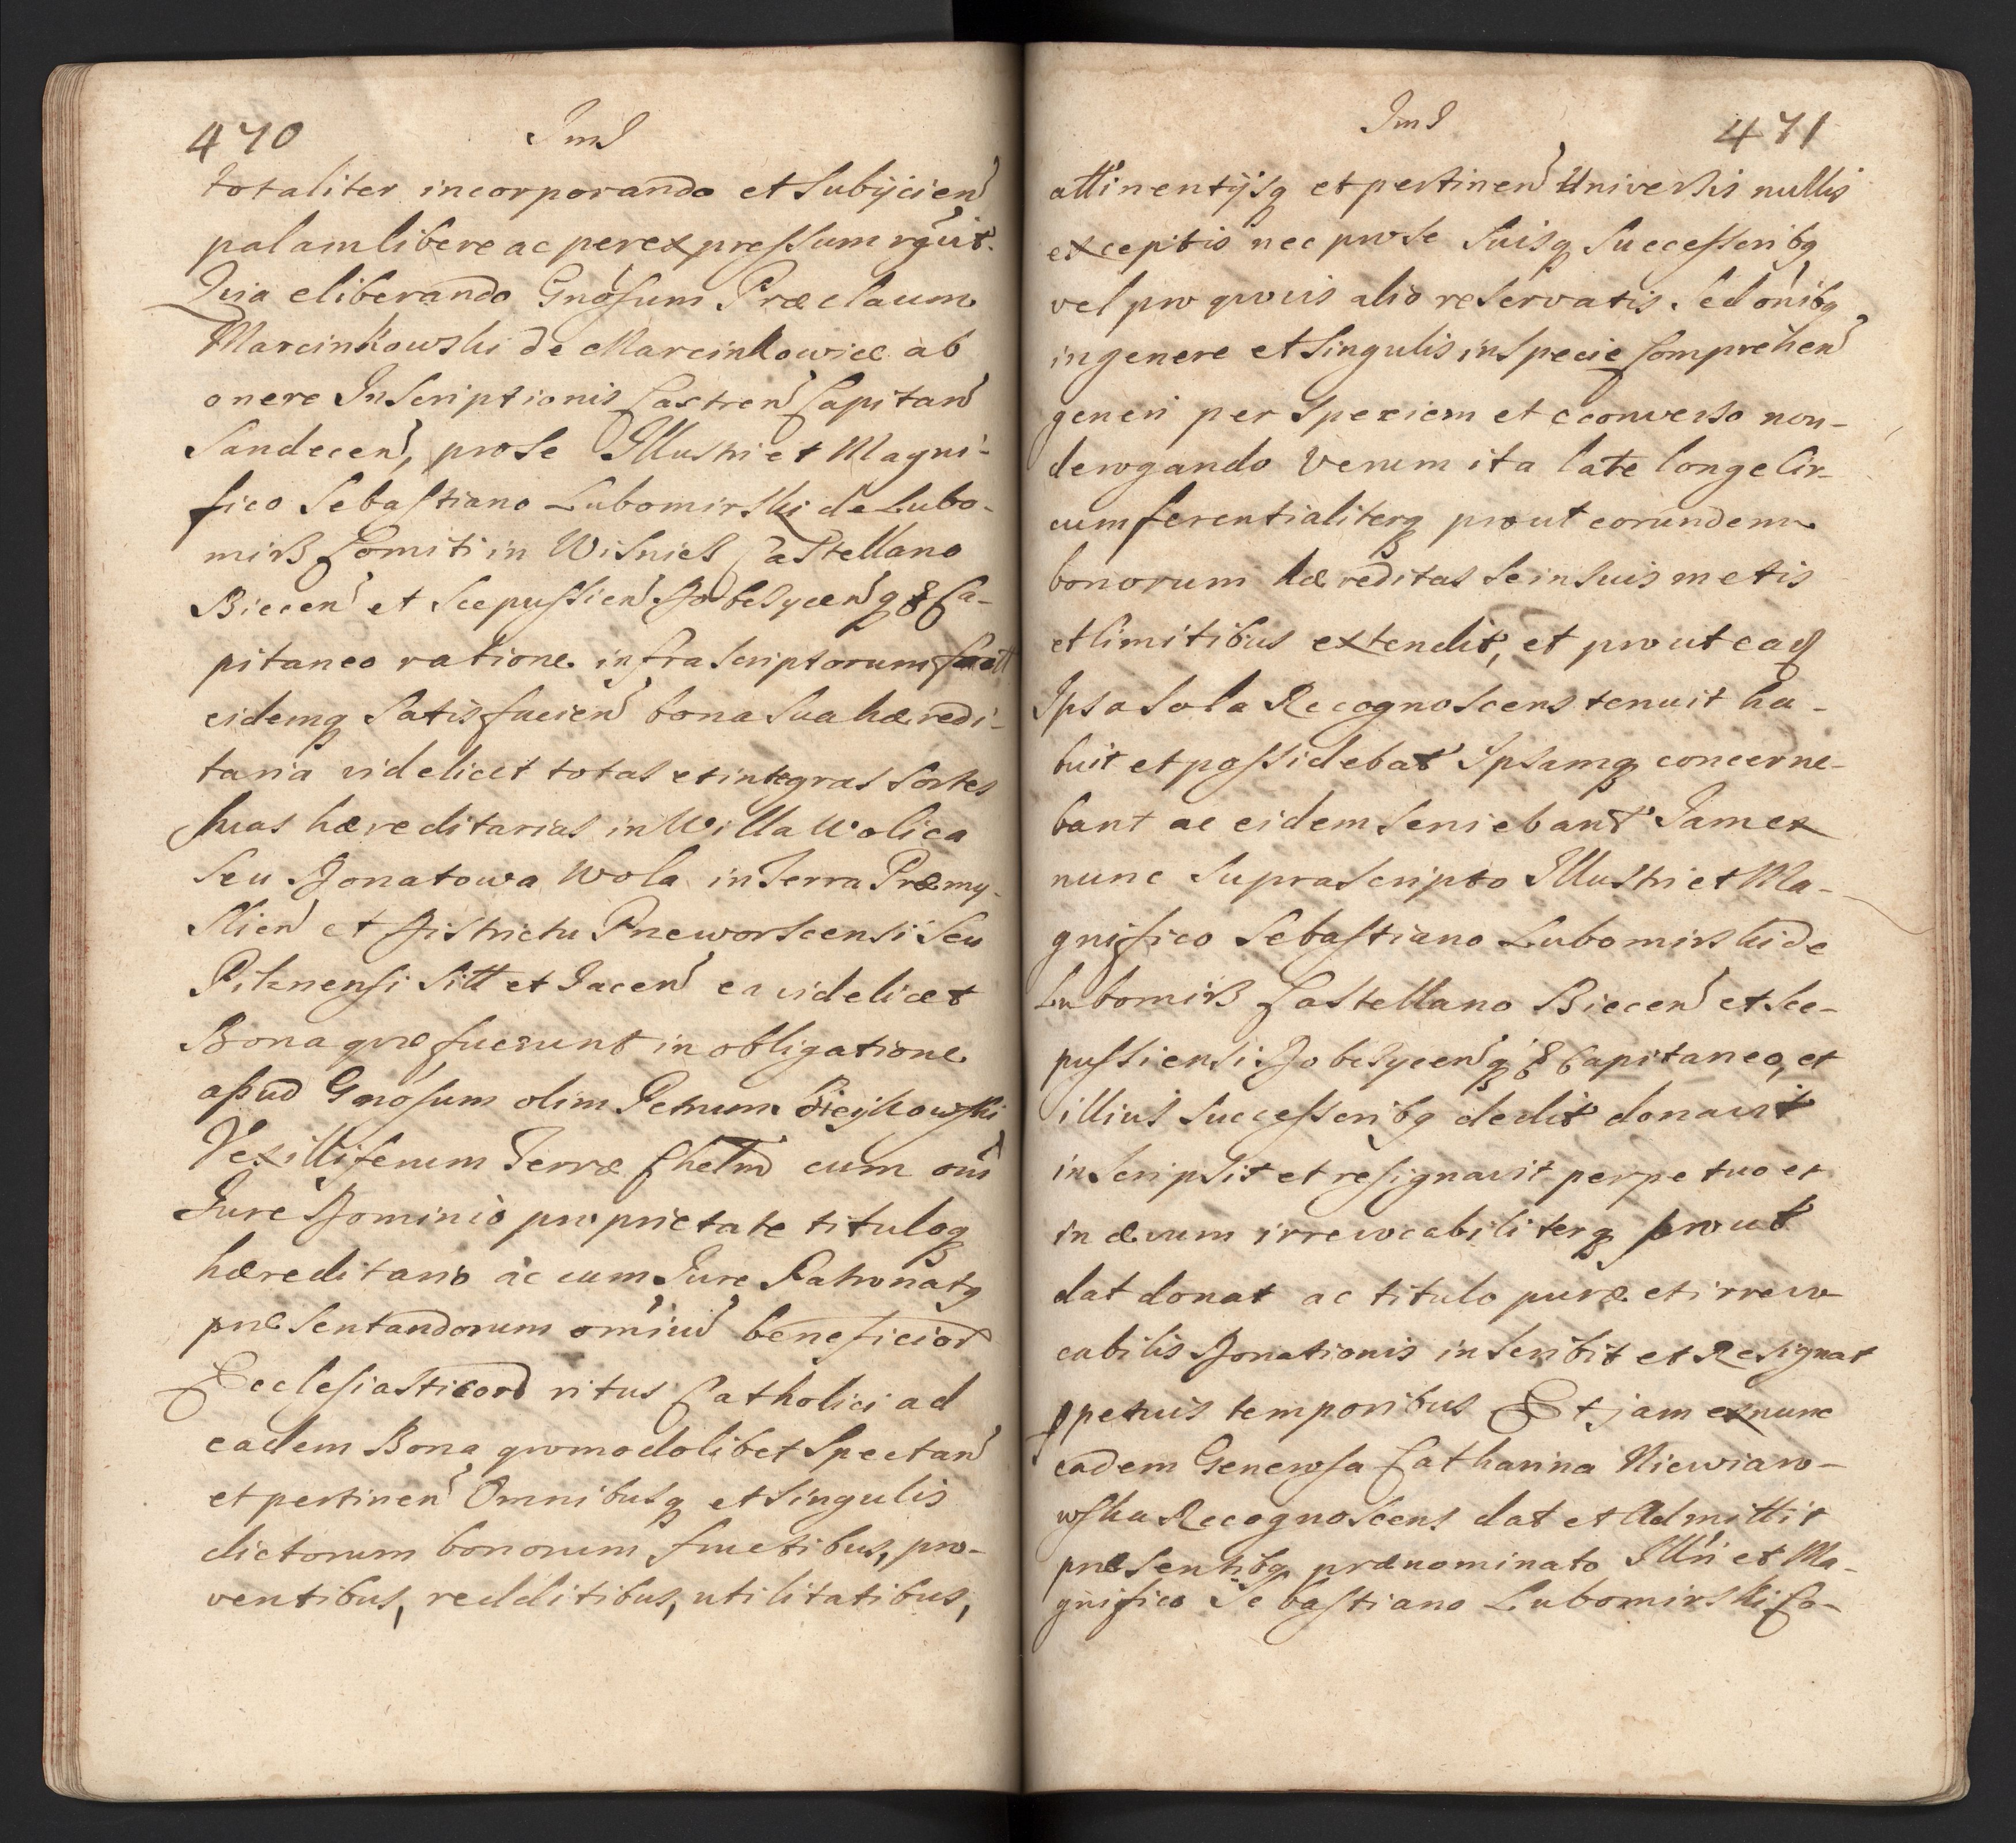 470
totaliter incorporando et Subijcien
palam libere ac per expressum rgūit.
Quia eliberando Gnōsum Præclaum
Marcinkowski de Marcinkowice ab
onere Inscriptionis Castren Capitan
Sandecen, pro se Illustri et Magni-
fico Sebastiano Lubomirski de Lubo-
mirz Comiti in Wisnicz Castellano
Biecen et Scepussien Dobczycenq Ca-
pitaneo ratione infrascriptorum
eidemq Satisfacien bona Sua hæredi-
taria videlicet totas et integras Sortes
Suas hæreditarias in Willa Wolica
Seu Donatowa Wola in Terra Præmy-
slien et Districtu Preworscensi Seu
Pilznensi Sitt et Jacen ea videlicet
Bona quæ fuerunt in obligatione
apud Gnōsum olim Petrum
Vexilliferum Terræ Chelm cum oni
Jure Dominio proprietate tituloq
hæreditario ac cum Jure Patronatq
præsentandorum omniū beneficior
Ecclesiasticor ritus Catholici ad
eadem Bona quomodolibet Spectan
et pertinen Omnibusq et Singulis
dictorum bonorum fructibus, pro-
ventibus, redditibus, utilitatibus,
471
attinentijsq et pertinen Universis nullis
exceptis nec pro se Suisq Successoribq
vel pro quovis alio reservatis. Sed onibq
in genere et Singulis in Specie Comprehen
generi per Speciem et econverso non-
derogando Verum ita late longe Cir-
cumferentialiterq prout eorundem
bonorum hæreditas Se in Suis metis
et limitibus extendit, et prout eaq
Ipsa Sola Recognoscens tenuit ha-
buit et possidebat Ipsamq concerne-
bant ac eidem Seruiebant Jam ex
nunc Suprascripto Illustri et Ma-
gnifico Sebastiano Lubomirski de
Lubomirz Castellano Biecen et Sce-
pussiensi Dobczycenq Capitaneo, et
illius Successoribq dedit donavit
inscripsit et resignavit perpetuo et
in ævum irrevocabiliterq prout
dat donat ac titulo puræ et irrevo
cabilis Donationis inscribit et Resignat
ppetuis temporibus Et jam ex nunc
eadem Generosa Catharina Niewiaro-
wska Recognoscens dat et Admittit
præsentibq prænominato Illri et Ma-
gnifico Sebastiano Lubomirski Co-